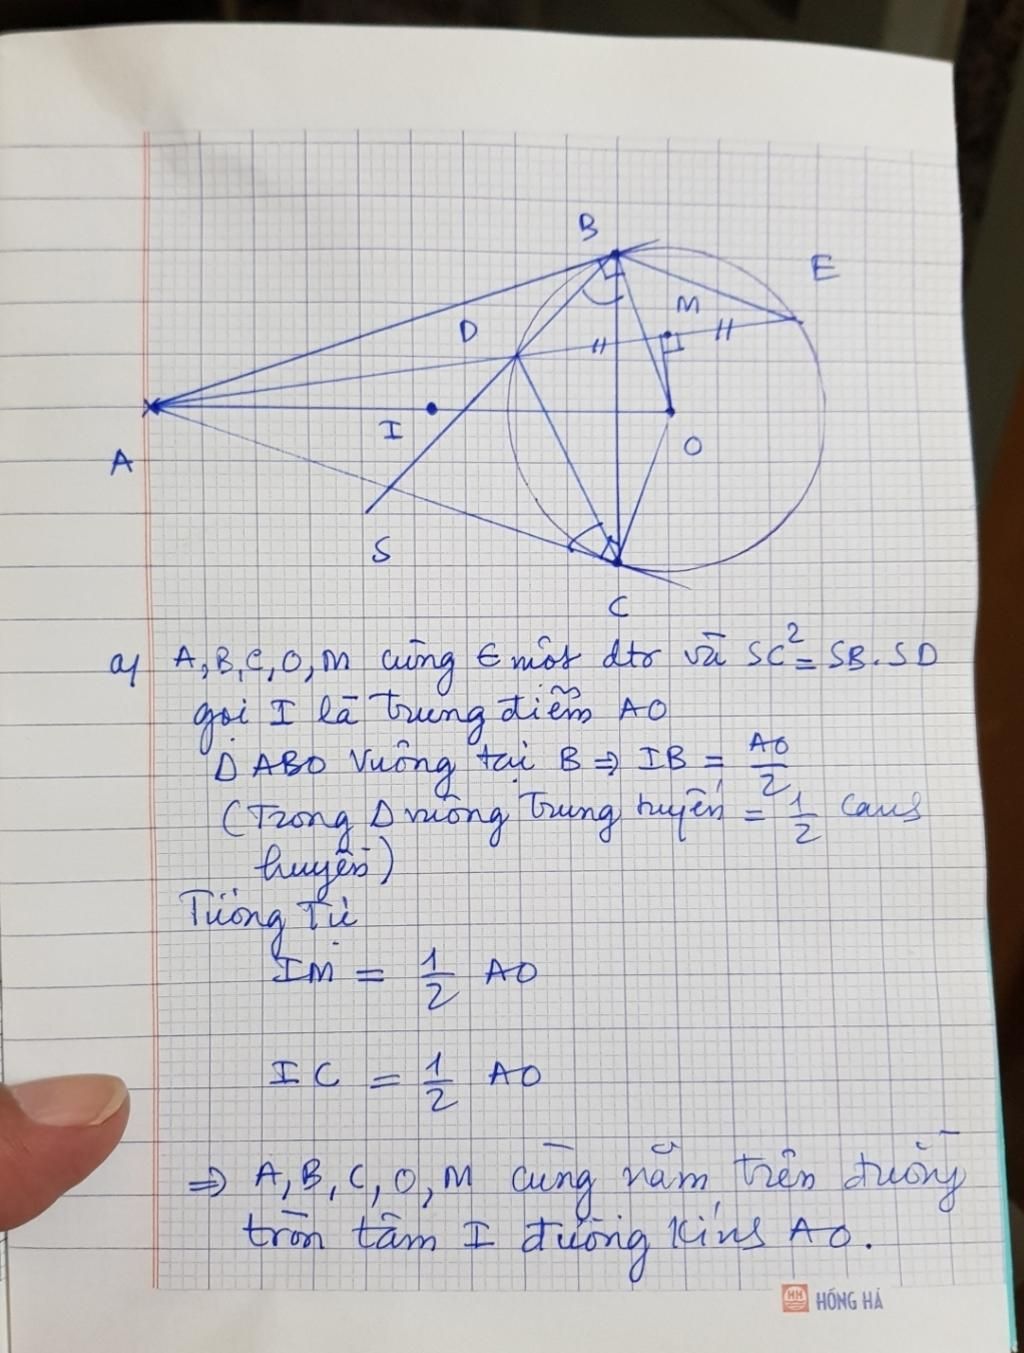 B
E
M
D
I
O
A
S
C
a) A, B, C, O, M cùng ∈ một đtr và SC² = SB.SD
gọi I là trung điểm AO
Δ ABO vuông tại B ⇒ IB = AO/2
(Trong Δ vuông trung tuyến = 1/2 cạnh
huyền)
Tương Tự
IM = 1/2 AO
IC = 1/2 AO
⇒ A, B, C, O, M cùng nằm trên đường
tròn tâm I đường kính AO.
HH HỒNG HÀ